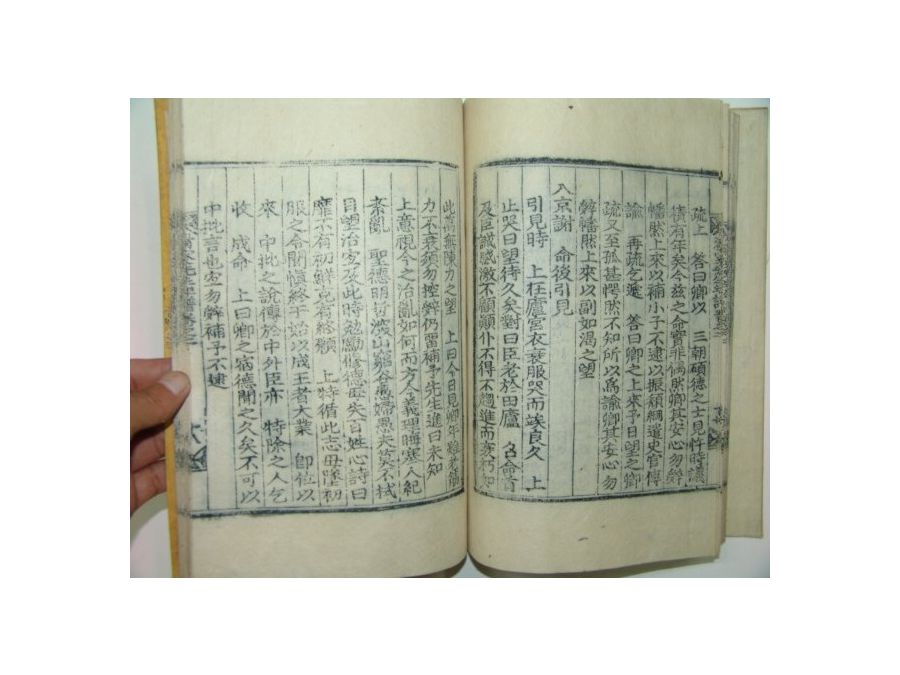 疏上　答曰卿以　三朝碩德之士見忤時議
積有年矣今玆之命實非偶然卿其安心勿辭
幡然上來以補小子不逮以振頹綱遣史官傳
諭　再疏乞遞　答曰卿之上來予日望之卿
疏又至孤甚愕然不知所以爲諭卿其安心勿
辭幡然上來以副如渴之望
入京謝　命後引見
引見時　上在廬宮衣衰服哭而竢良久　上
止哭曰望待久矣對曰臣老於田廬　召命首
及臣誠感激不顧顚仆不得不趨進而衰朽如
此萬無陳力之望　上曰今日見卿年雖老筋
力不衰須勿控辭仍留補予先生進曰未知
上意視今之治亂如何而方今義理晦塞人紀
紊亂　聖德明哲深山窮谷愚婦愚夫莫不拭
目望治宜及此時勉勵修德無失百姓心詩曰
靡不有初鮮克有終願　上特循此志毋墜初
服之令聞愼終于始以成王者大業　卽位以
來　中批之說傳於中外臣亦　特除之人乞
收　成命　上曰卿之宿德聞之久矣不可以
中批言也宜勿辭補予不逮